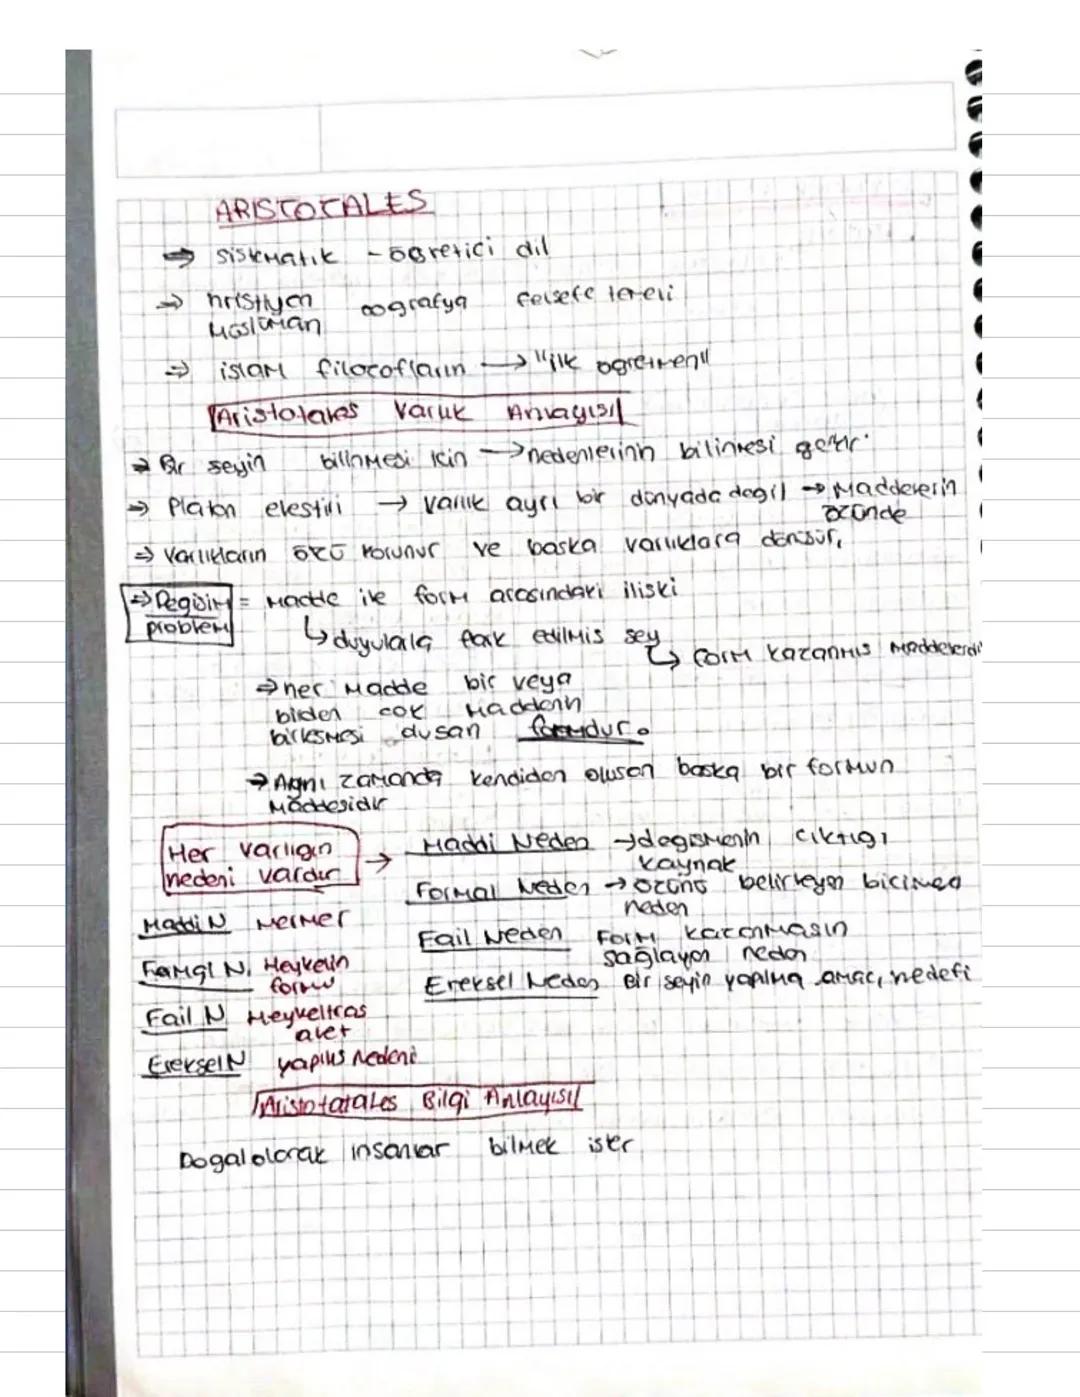 ARISTOTALES
⇒ sistematik - öğretici dil
⇒ hristiyen coğrafya felsefe temeli
Müslüman
⇒ islam filozofların → "ilk öğretmen"
Aristotales Varlık Anlayışı
⇒ Bir şeyin bilinmesi için → nedenlerinin bilinmesi gerekir.
⇒ Platon eleştiri → varlık ayrı bir dünyada değil → Maddelerin
özünde
⇒ Varlıkların özü korunur ve başka varlıklara dönüşür,
⇒ Değişim = Madde ile form arasındaki ilişki
problemi
↳ duyularla fark edilmiş şey
↳ form kazanmış maddelerdir
⇒ her madde bir veya
birden çok maddenin
birleşmesi oluşan formdur.
→ Aynı zamanda kendiden oluşan başka bir formun
maddesidir
Her varlığın
nedeni vardır →
Maddi Neden → değişmenin çıktığı
kaynak
Formal Neden → özünü belirleyen biçimsel
neden
Fail Neden Form kazanmasın
sağlayan neden
Ereksel Neden Bir şeyin yapılma amacı, hedefi
Maddi N Mermer
Formal N. Heykelin
formu
Fail N Heykeltraş
alet
Ereksel N yapılış nedeni
Aristotatales Bilgi Anlayışı
Doğal olarak insanlar bilmek ister